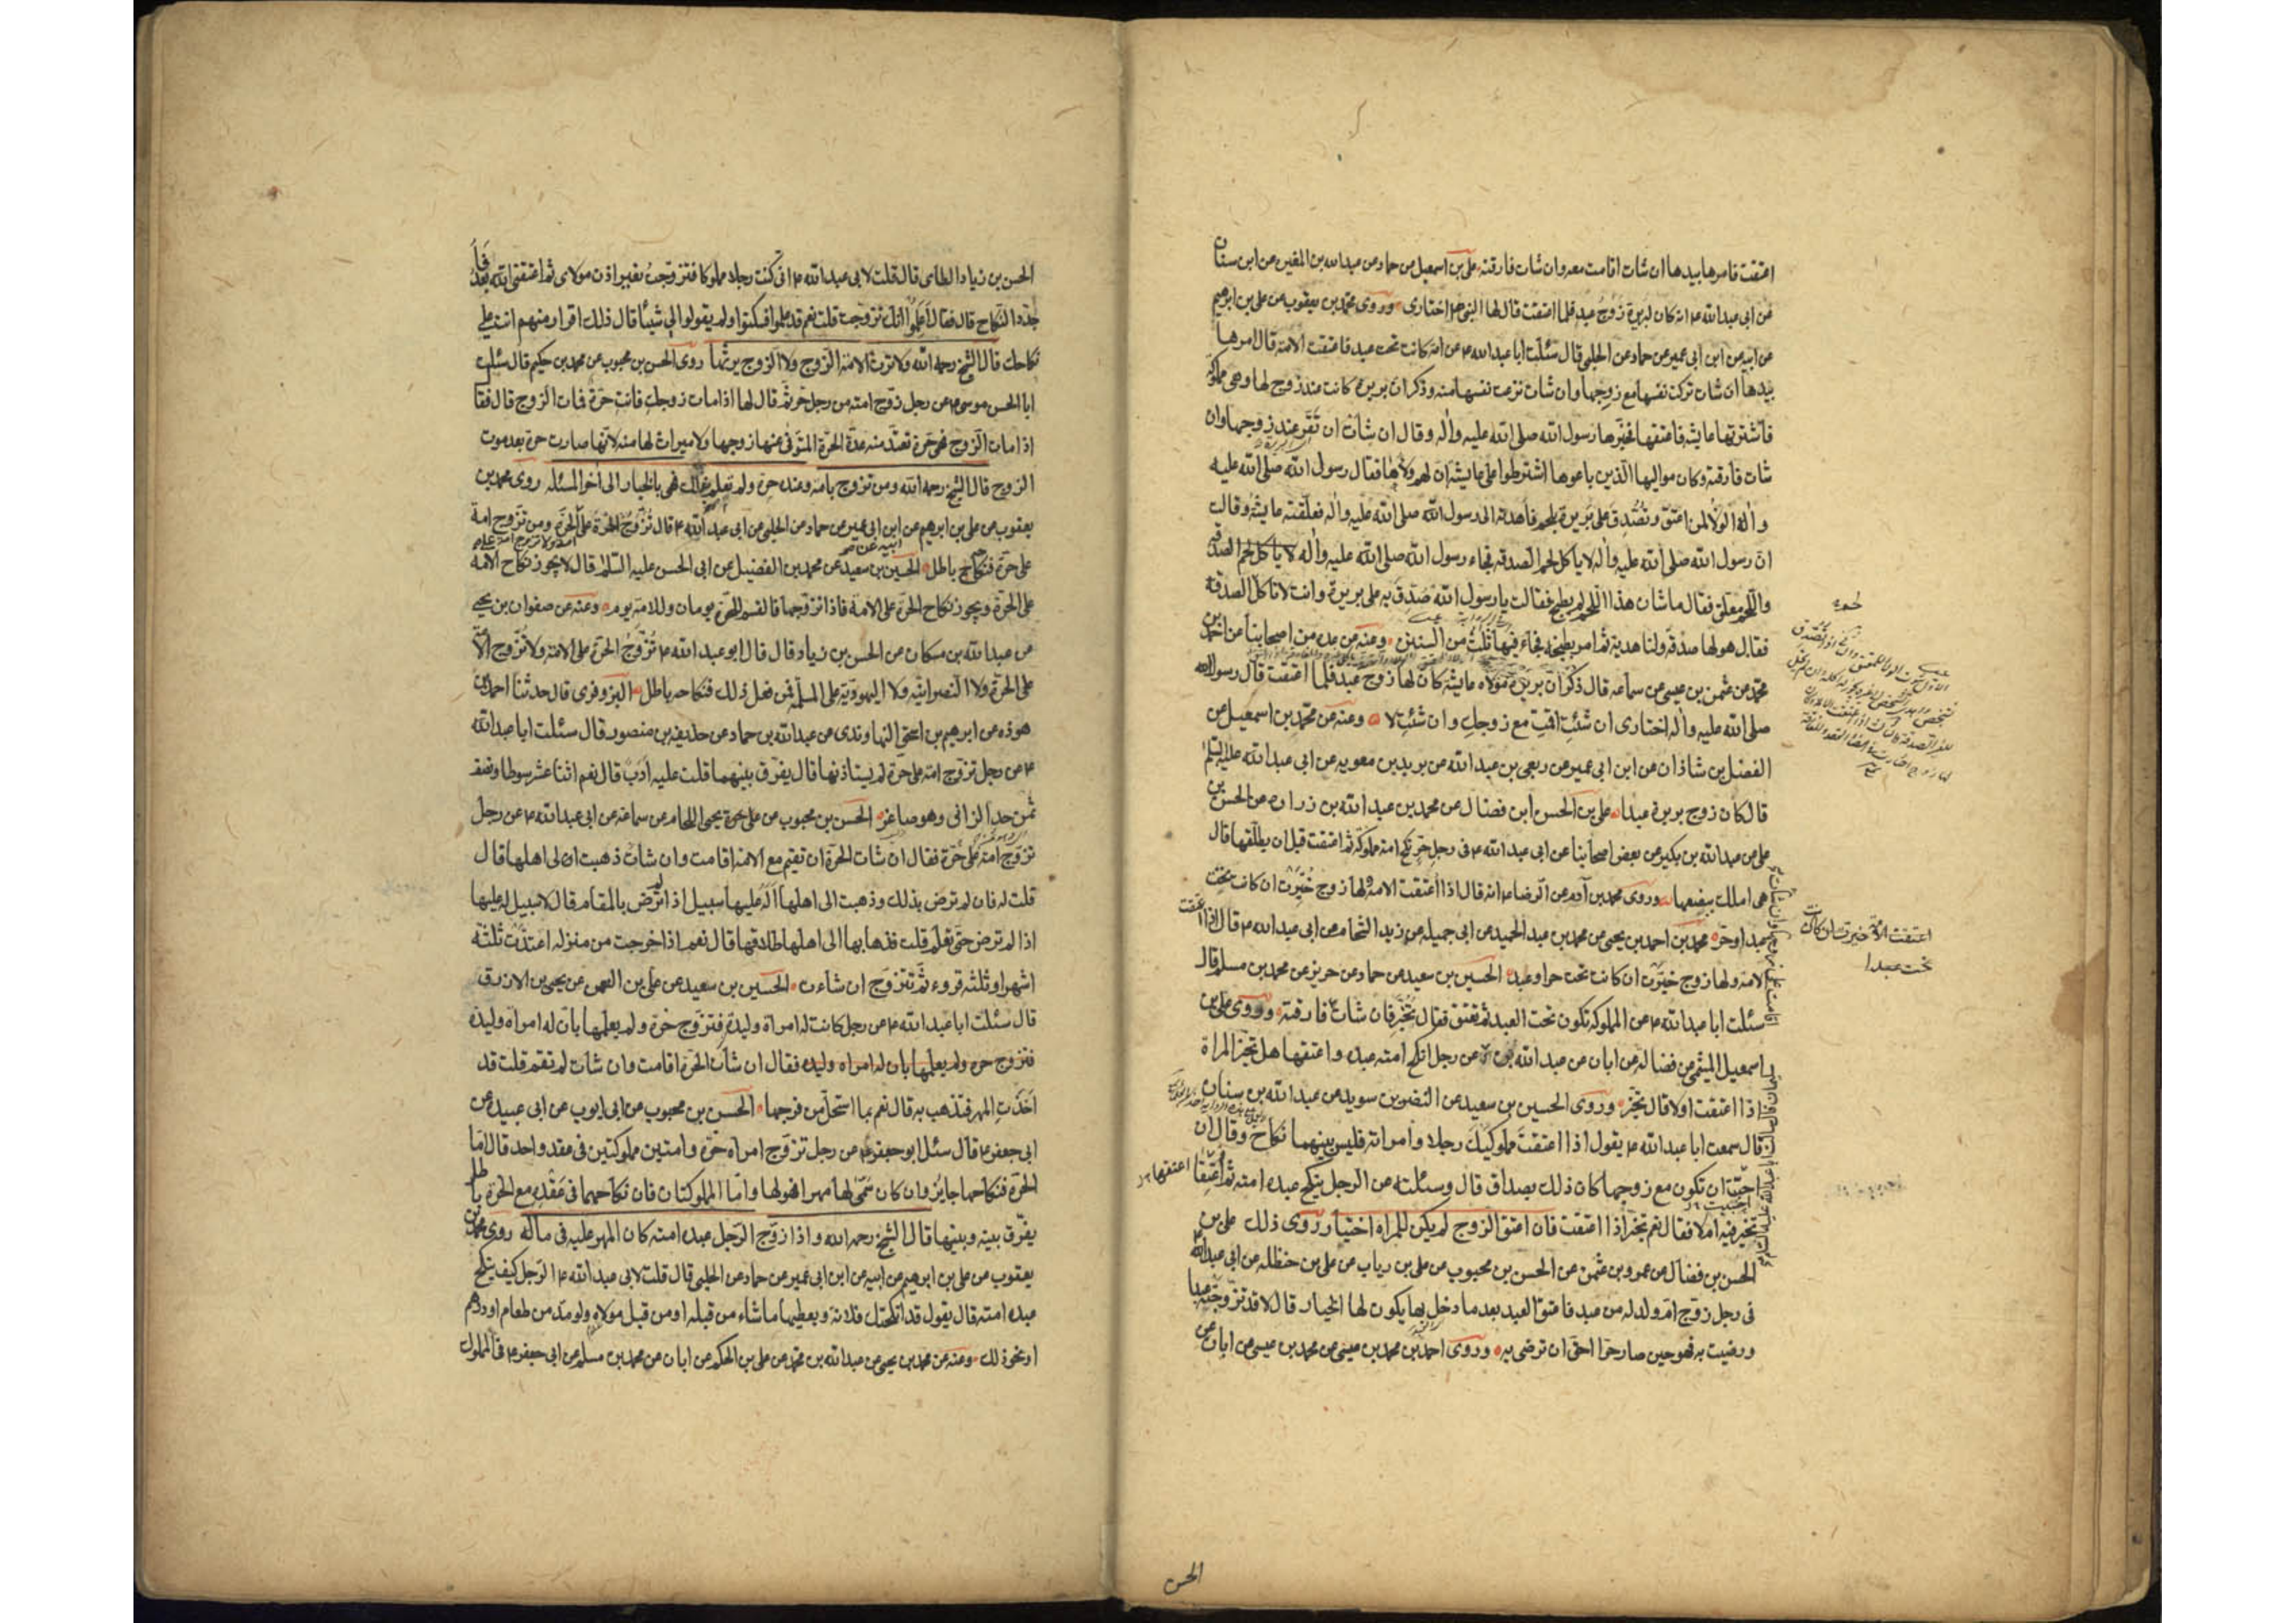 اعتقت فامرها بيدها ان شات اقامت معه وان شات فارقته علي بن اسمعيل عن حماد عن عبد الله بن المغيره عن ابن سنان
عن ابي عبد الله ع انه كان لبريرة زوج عبد فلما اعتقت قال لها النبي ص اختاري وروى محمد بن يعقوب عن علي بن ابرهيم
عن ابيه عن ابن ابي عمير عن حماد عن الحلبي قال سئلت ابا عبد الله ع عن امة كانت تحت عبد فاعتقت الامة قال امرها
بيدها ان شات تركت نفسها مع زوجها وان شات نزعت نفسها منه وذكر ان بريرة كانت عند زوج لها وهي مملوكة
فاشترتها عايشه فاعتقها فخيرها رسول الله صلى الله عليه واله وقال ان شات ان تقر عند زوجها وان
شات فارقته وكان مواليها الذين باعوها اشترطوا على عايشه ان لهم ولاءها فقال رسول الله صلى الله عليه
واله الولاء لمن اعتق وتصدق على بريرة بلحم فاهدته الى رسول الله صلى الله عليه واله فعلقته عايشه وقالت
ان رسول الله صلى الله عليه واله لا ياكل لحم الصدقه فجاء رسول الله صلى الله عليه واله لا ياكل لحم الصدقه
واللحم معلق فقال ما شان هذا اللحم لم يطبخ فقالت يا رسول الله صدق به على بريرة وانت لا تاكل الصدقة
فقال هو لها صدقة ولنا هدية ثم امر بطبخه فجاء فيها ثلث من السنن وعنه عن عدة من اصحابنا عن احمد بن
محمد عن عثمن بن عيسى عن سماعه قال ذكر ان بريرة مولاة عايشه كان لها زوج عبد فلما اعتقت قال رسول الله
صلى الله عليه واله اختاري ان شئت اقمت مع زوجك وان شئت لا وعنه عن محمد بن اسمعيل عن
الفضل بن شاذان عن ابن ابي عمير عن ربعي بن عبد الله عن بريد بن معويه عن ابي عبد الله عليه السلم
قال كان زوج بريرة عبدا علي بن الحسن ابن فضال عن محمد بن عبد الله بن زراره عن الحسن بن
علي عن عبد الله بن بكير عن بعض اصحابنا عن ابي عبد الله ع في رجل حر نكح امة مملوكة ثم اعتقت قبل ان يطلقها قال
هي املك ببضعها وروى محمد بن آدم عن الرضا ع انه قال اذا اعتقت الامة ولها زوج خيرت ان كانت تحت
عبد او حر محمد بن احمد بن يحيى عن محمد بن عبد الحميد عن ابي جميله عن زيد الشحام عن ابي عبد الله ع قال اذا اعتقت
الامة ولها زوج خيرت ان كانت تحت حر او عبد الحسين بن سعيد عن حماد عن حريز عن محمد بن مسلم قال
سئلت ابا عبد الله ع عن المملوكه تكون تحت العبد ثم تعتق فقال تخير فان شات فارقته وروى علي بن
اسمعيل الميثمي عن فضاله عن ابان عن عبد الله عن رجل انكح امته عبده واعتقها هل تخير المراة
اذا اعتقت او لا قال تخير وروى الحسين بن سعيد عن النضر بن سويد عن عبد الله بن سنان
قال سمعت ابا عبد الله ع يقول اذا اعتقت مملوكيك رجلا وامراته فليس بينهما نكاح وقال ان
احبت ان تكون مع زوجها كان ذلك بصداق قال وسئلته عن الرجل ينكح عبده امته ثم اعتقها
تخير فيه ام لا فقال نعم تخير اذا اعتقت فان اعتق الزوج لم يكن للمراه اختيار روى ذلك علي بن
الحسن بن فضال عن عمرو بن عثمن عن الحسن بن محبوب عن علي بن رياب عن علي بن حنظله عن ابي عبد الله ع
في رجل زوج ام ولد له من عبد فاعتق العبد بعد ما دخل بها يكون لها الخيار قال لا قد تزوجته عبدا
ورضيت به فهو حين صار حرا احق ان ترضى به وروى احمد بن محمد بن عيسى عن محمد بن عيسى عن ابان عن
اعتقت الامة خيرت ان كانت
تحت عبدا
الحسن
الحسن بن زياد الطامى قال قلت لابي عبد الله ع اني كنت رجلا مملوكا فتزوجت بغير اذن مولاي ثم اعتقني الله بعد فا
جدد النكاح قال فقال اعلموا انك تزوجت قلت نعم قد علموا فسكتوا ولم يقولوا لي شيئا قال ذلك اقرار منهم انت على
نكاحك قال الشيخ رحمه الله ولا ترث الامة الزوج ولا الزوج يرثها روى الحسن بن محبوب عن محمد بن حكيم قال سئلت
ابا الحسن موسى ع عن رجل زوج امته من رجل حر ثم قال لها اذا مات زوجك فانت حرة فمات الزوج قال فقا
اذا مات الزوج فهي حرة تعتد منه عدة الحرة المتوفى عنها زوجها ولا ميراث لها منه لانها صارت حرة بعد موت
الزوج قال الشيخ رحمه الله ومن تزوج بامة وعنده حرة ولم تعلم بذلك فهي بالخيار الى اخر المسئله روى محمد بن
يعقوب عن علي بن ابرهيم عن ابن ابي عمير عن حماد عن الحلبي عن ابي عبد الله ع قال تزوج الحرة على الحرة ومن تزوج امة
على حرة فنكاحه باطل الحسين بن سعيد عن محمد بن الفضيل عن ابي الحسن عليه السلم قال لا يجوز نكاح الامة
على الحرة ويجوز نكاح الحرة على الامة فاذا تزوجها فالقسم للحرة يومان وللامة يوم وعنه عن صفوان بن يحيى
عن عبد الله بن مسكان عن الحسن بن زياد قال قال ابو عبد الله ع تزوج الحرة على الامة ولا تزوج الامة
على الحرة ولا النصرانيه ولا اليهودية على المسلمة فمن فعل ذلك فنكاحه باطل البزوفرى قال حدثنا احمد بن
هوذه عن ابرهيم بن اسحق النهاوندى عن عبد الله بن حماد عن حذيفه بن منصور قال سئلت ابا عبد الله
ع عن رجل تزوج امة على حرة لم يستاذنها قال يفرق بينهما قلت عليه ادب قال نعم اثنا عشر سوطا ونصف
ثمن حد الزانى وهو صاغر الحسن بن محبوب عن يحيى اللحام عن سماعة عن ابي عبد الله ع عن رجل
تزوج امة على حرة فقال ان شات الحرة ان تقيم مع الامة اقامت وان شات ذهبت ان الى اهلها قال
قلت له فان لم ترض بذلك وذهبت الى اهلها اله عليها سبيل اذا لم ترض بالمقام قال لا سبيل له عليها
اذا لم ترض حتى تعلم قلت فذهابها الى اهلها طلاقها قال نعم اذا خرجت من منزله اعتدت ثلثة
اشهر او ثلثه قروء ثم تتزوج ان شاءت الحسين بن سعيد عن علي بن النعمن عن يحيى بن الازرق
قال سئلت ابا عبد الله ع عن رجل كانت له امراة وليدة فتزوج حرة ولم يعلمها بان له امراة وليدة
فتزوج حره ولم يعلمها بان له امراه وليده فقال ان شات الحرة اقامت وان شات لم تقم قلت قد
اخذت المهر فتذهب به قال نعم بما استحل من فرجها الحسن بن محبوب عن ابي ايوب عن ابي عبيدة عن
ابي جعفر ع قال سئل ابو جعفر ع عن رجل تزوج امراة حرة وامتين مملوكتين في عقد واحد قال اما
الحرة فنكاحها جايز وان كان سمى لها مهرا فهو لها واما المملوكتان فان نكاحهما في عقد مع الحرة باطل
يفرق بينه وبينها قال الشيخ رحمه الله واذا زوج الرجل عبده امته كان المهر عليه في ماله روى محمد بن
يعقوب عن علي بن ابرهيم عن ابيه عن ابن ابي عمير عن حماد عن الحلبي قال قلت لابي عبد الله ع الرجل كيف ينكح
عبده امته قال يقول قد انكحتك فلانة ويعطيها ما شاء من قبله او من قبل مولاه ولو مد من طعام او درهم
او نحو ذلك وعنه عن محمد بن يحيى عن عبد الله بن محمد عن علي بن الحكم عن ابان عن محمد بن مسلم عن ابي جعفر ع في المملوك